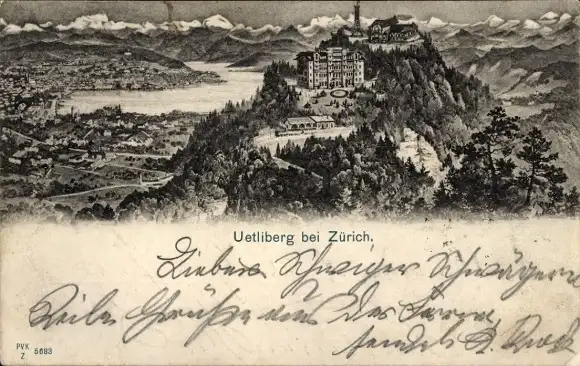 Uetliberg bei Zürich.
Liebes Schwiger Schwägern
Viele Grüße aus der Ferne
sendet
PVK
Z 5683